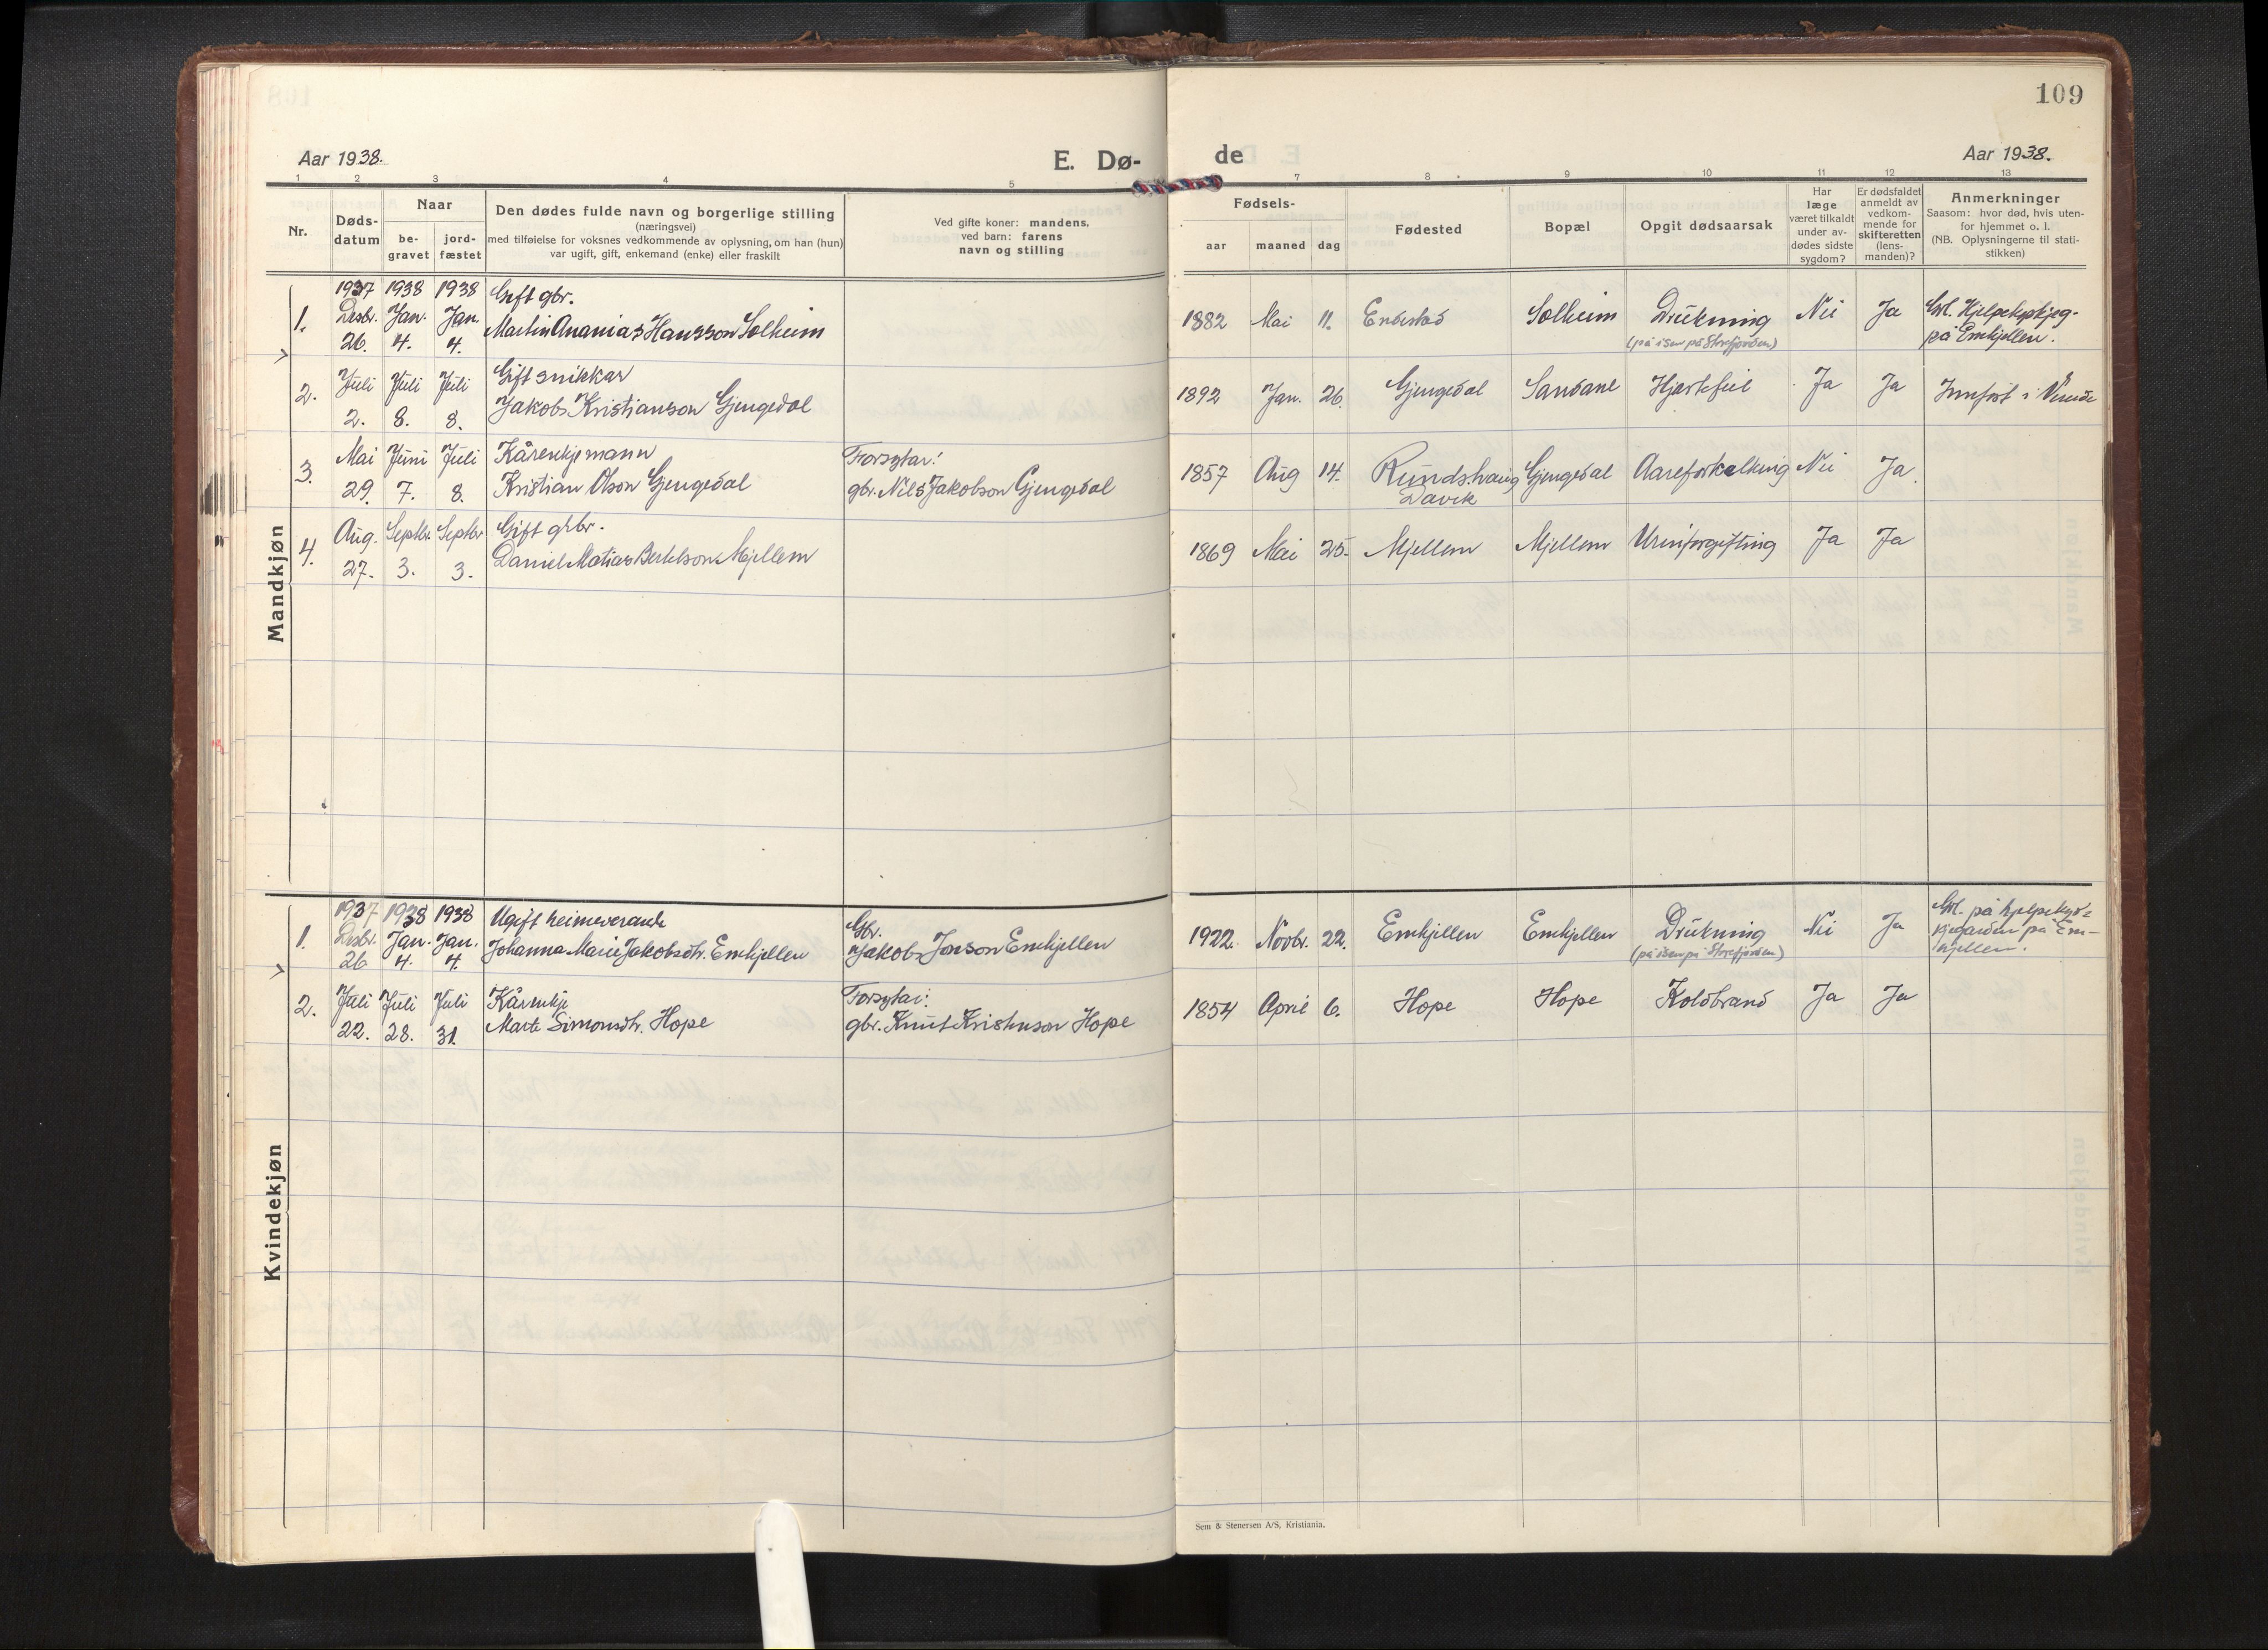 109
Aar 1938.
E. Dø-
de
Aar 1938.
1 2 3 4 5 7 8 9 10 11 12 13
Nr.
Døds-
datum
Naar
be-
gravet
jord-
fæstet
Den dødes fulde navn og borgerlige stilling
(næringsvei)
med tilføielse for voksnes vedkommende av oplysning, om han (hun)
var ugift, gift, enkemand (enke) eller fraskilt
Ved gifte koner: mandens,
ved barn: farens
navn og stilling
Fødsels-
aar
maaned
dag
Fødested
Bopæl
Opgit dødsaarsak
Har
læge
været tilkaldt
under av-
dødes sidste
sygdom?
Er dødsfaldet
anmeldt av
vedkom-
mende for
skifteretten
(lens-
manden)?
Anmerkninger
Saasom: hvor død, hvis uten-
for hjemmet o. l.
(NB. Oplysningerne til stati-
stikken)
Mandkjøn
1937 1938 1938 Gift gbr.
1. Desbr. Jan. Jan. Martin Ananias Hansson Solheim 1882 Mai 11. Solheim Drukning Nei Ja
26. 4. 4. (på isen på Storefjorden) på Emhjellen.
2. Juli Juli Juli Gift snikkar
2. 8. 8. Jakob Kristianson Gjengedal 1892 Jan. 26. Gjengedal Sandane Hjartefeil Ja Ja Innført i
3. Mai Juni Juli Kårenkjemann Forsytar:
29. 7. 8. Kristian Olson Gjengedal gbr. Nils Jakobson Gjengedal 1857 Aug 14. Gjengedal Aareforkalking Nei Ja.
Davik
4. Aug. Septbr. Septbr. Gift gbr.
27. 3. 3. Daniel Matias Bertelson Mjellem 1869 Mai 25. Mjellem Mjellem Urinforgifting Ja Ja
Kvindekjøn
1937 1938 1938 Ugift heimeverande Gbr.
1. Desbr. Jan. Jan. Johanna Marie Jakobsdtr. Emhjellen Jakob Jonson Emhjellen 1922. Novbr. 22. Emhjellen Emhjellen Drukning Nei Ja
26 4. 4. (på isen på Storefjorden)
2. Juli Juli Juli Kårenkje Forsytar:
22. 28. 31. Marte Simonsdtr. Hope gbr. Knut Kristenson Hope 1854 April 6. Hope Hope Koldbrand Ja Ja
Sem & Stenersen A/S, Kristiania.